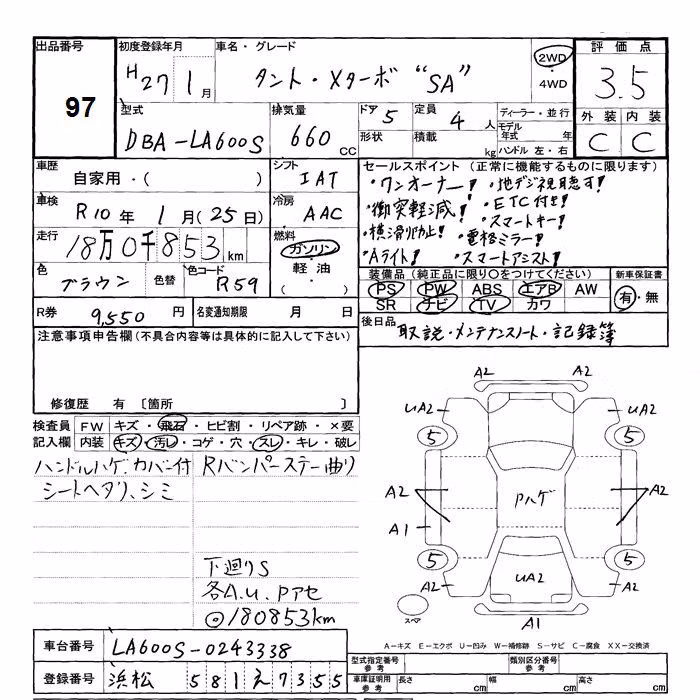 出品番号 97
初度登録年月 H27 1月
車名・グレード タント・Xターボ "SA"
2WD・4WD
評価点 3.5
外装 C 内装 C
型式 DBA-LA600S
排気量 660 CC
ドア 5
形状
定員 4 人
積載 kg
ディーラー・並行
モデル年式 年
ハンドル 左・右
車歴 自家用・( )
シフト IAT
車検 R10年 1月(25日)
冷房 AAC
走行 18万0千853km
燃料 ガソリン・軽油・( )
色 ブラウン 色替
色コード R59
セールスポイント(正常に機能するものに限ります)
・ワンオーナー! ・地デジ視聴す!
・衝突軽減! ・ETC付き!
・横滑り防止! ・スマートキー!
・電格ミラー!
・Aライト! ・スマートアシスト!
装備品(純正品に限り○をつけてください) 新車保証書
PS PW ABS エアB AW
SR ナビ TV カワ
有・無
R券 9,550円
名変通知期限 月 日
後日品 取説・メンテナンスノート・記録簿
注意事項申告欄(不具合内容等は具体的に記入して下さい)
修復歴 有 〔箇所 〕
検査員記入欄
FW キズ・飛石・ヒビ割・リペア跡・×要
内装 キズ・汚レ・コゲ・穴・スレ・キレ・破レ
ハンドルハゲ、カバー付 Rバンパーステー曲り
シートヘタリ、シミ
下廻りS
各A.U.Pアセ
◎180853km
A2 A2
UA2 UA2
5 5
A2 Pハゲ A2
A1
5 5
A2 UA2 A2
スペア A1
A-キズ E-エクボ U-凹み W-補修跡 S-サビ C-腐食 XX-交換済
車台番号 LA600S-0243338
登録番号 浜松 581え7355
型式指定番号 参考
類別区分番号 参考
車庫証明用 参考 長さ cm 幅 cm 高さ cm